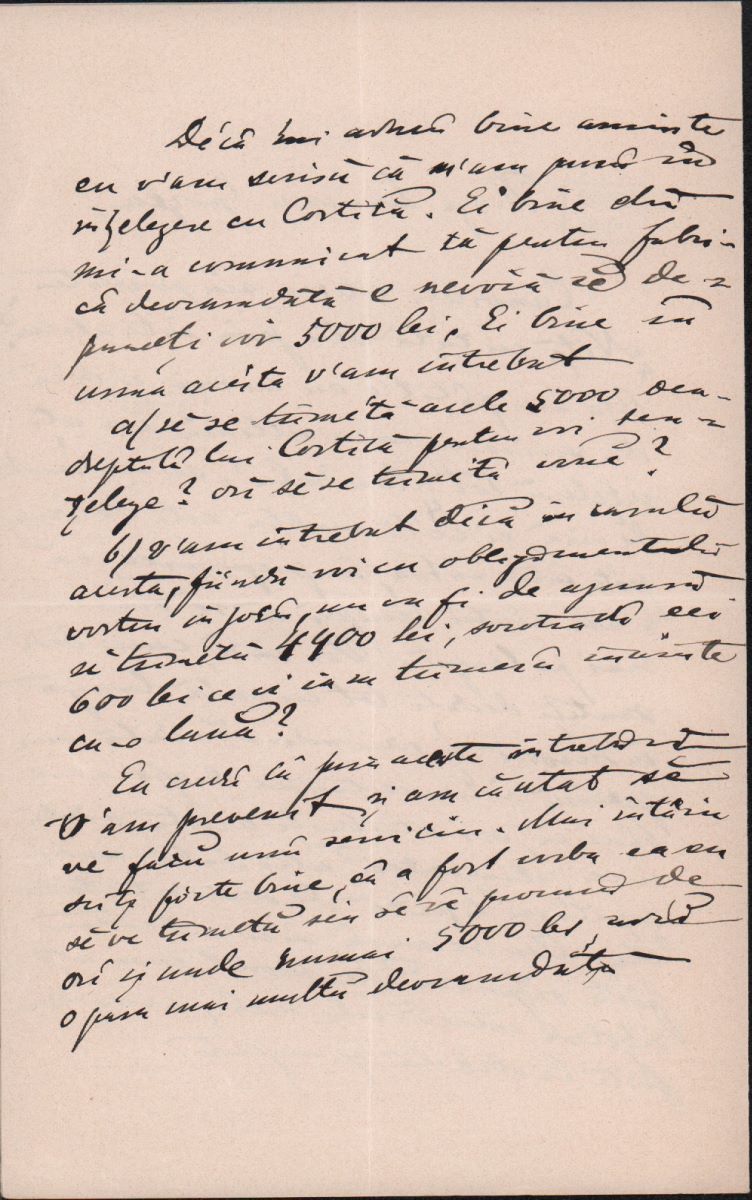 Décă îmi aducă bine aminte
eu v'am scrisŭ că m'am pusŭ în
înțelegere cu Costită. Ei bine dsa
mi-a comunicat că pentru fabri-
că deocamdată e nevoiă sĕ de-
puneți voi 5000 lei. Ei bine în
urma acésta v'am întrebat
a/ sĕ se trimétă acele 5000 dea-
dreptulŭ lui Costită pentru voi se în-
țelege? ori sĕ se trimétă vouĕ?
b/ v'am întrebat décă în casulŭ
acesta, fiindcă voi cu obligamentulŭ
vostru în josŭ, nu va fi de ajunsŭ
sĕ trimetŭ 4400 lei, socotindŭ cei
600 lei ce vi i-am trimesŭ înainte
cu-o lună?
Eu credŭ că prin aceste întrebărĭ
v'am prevenit și am căutat sĕ
vĕ facŭ unŭ serviciu. Mai întâiu
sciți fórte bine, că a fost vorba ca eu
sĕ ve trimetŭ sĕu sĕ vĕ procurŭ de
ori și unde numai 5000 lei, nică
o para mai multŭ deocamdată